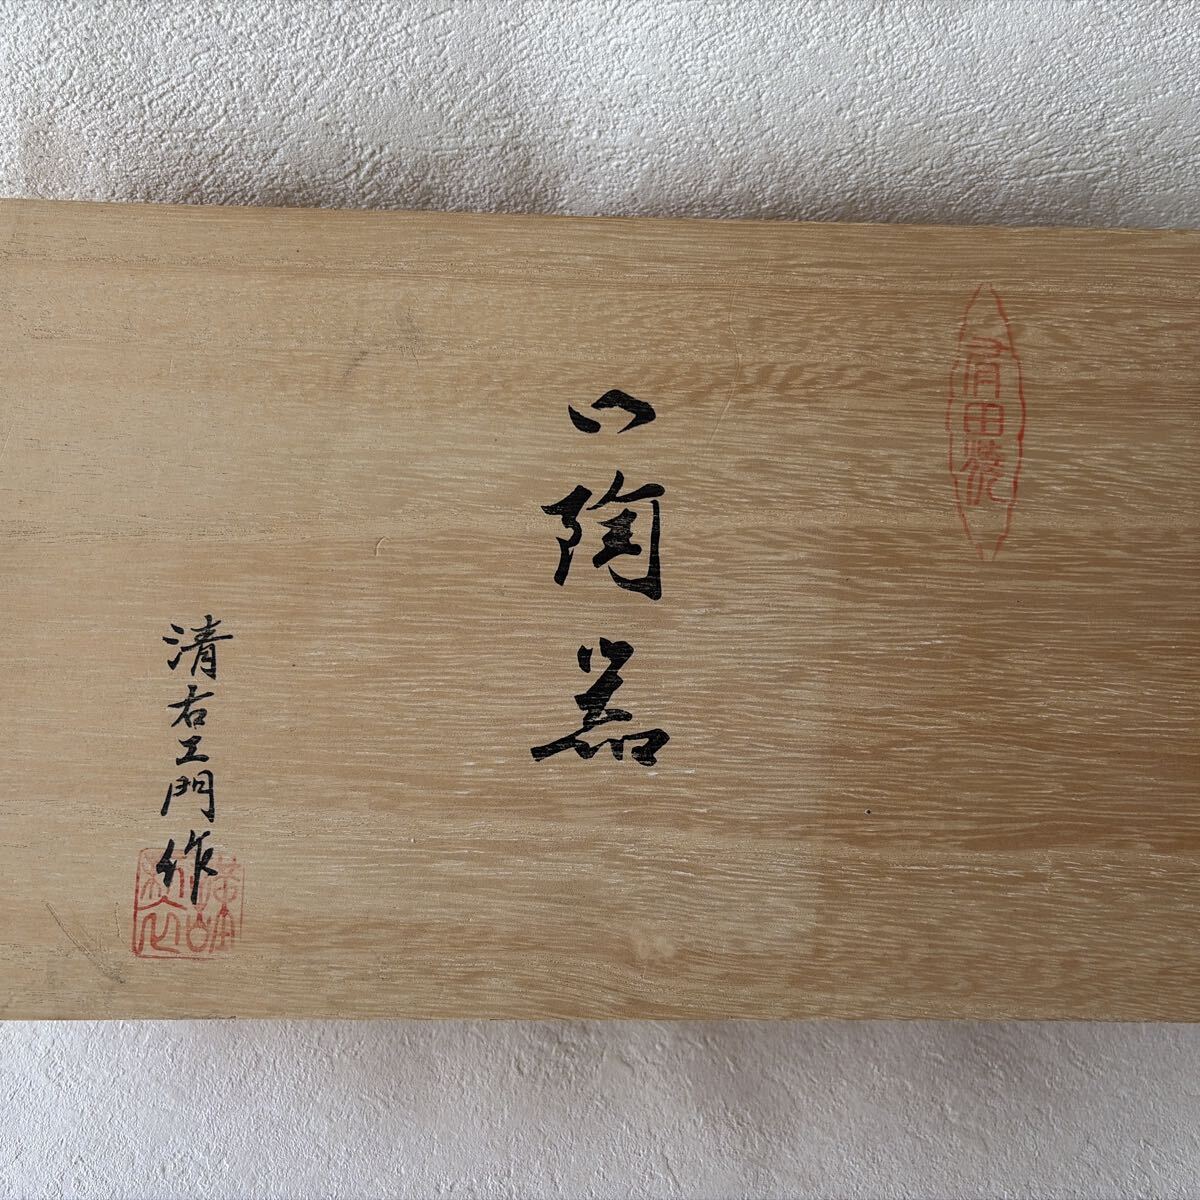 有田焼
一陶器
清右エ門作